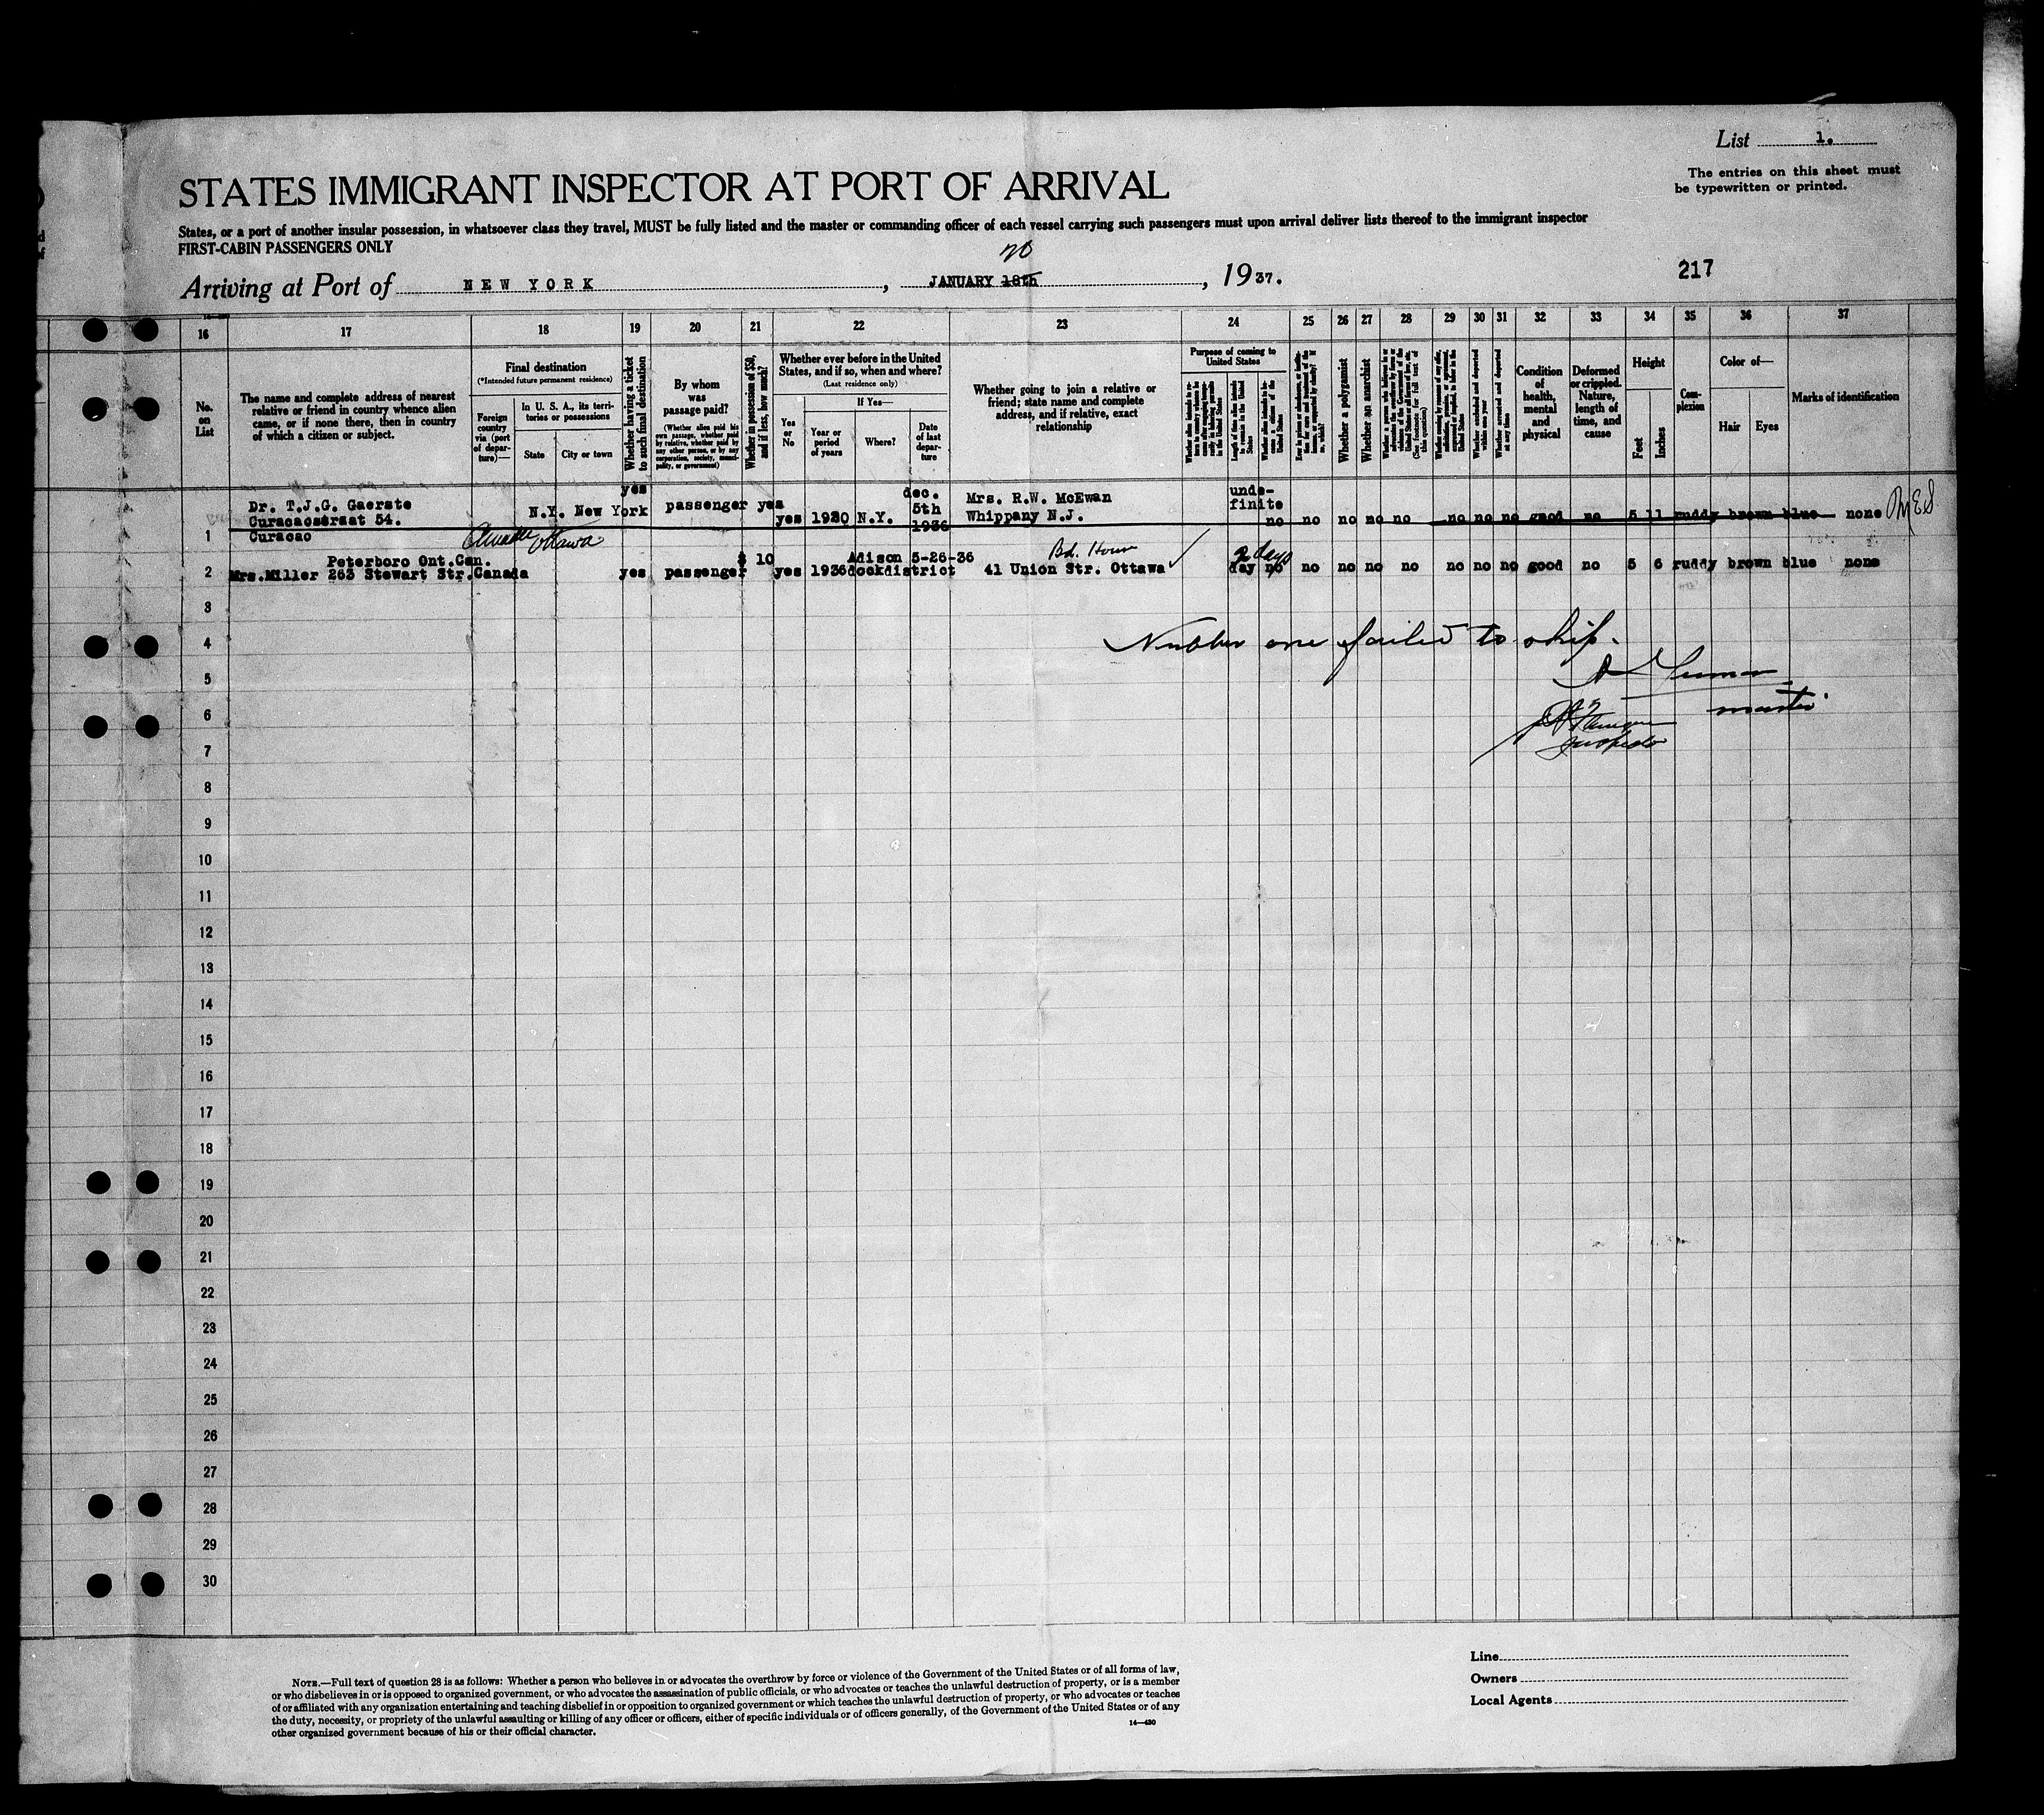 List 1.
The entries on this sheet must
be typewritten or printed.
STATES IMMIGRANT INSPECTOR AT PORT OF ARRIVAL
States, or a port of another insular possession, in whatsoever class they travel, MUST be fully listed and the master or commanding officer of each vessel carrying such passengers must upon arrival deliver lists thereof to the immigrant inspector
FIRST-CABIN PASSENGERS ONLY
20
Arriving at Port of NEW YORK, JANUARY 18th, 1937.
217
16 17 18 19 20 21 22 23 24 25 26 27 28 29 30 31 32 33 34 35 36 37
No.
on
List
The name and complete address of nearest
relative or friend in country whence alien
came, or if none there, then in country
of which a citizen or subject.
Final destination
(*Intended future permanent residence)
Foreign
country
via (port
of depar-
ture)—
In U. S. A., its terri-
tories or possessions
State
City or town
Whether having a ticket
to such final destination
By whom
was
passage paid?
(Whether alien paid his
own passage, whether paid
by relative, whether paid by
any other person, or by any
corporation, society, munici-
pality, or government)
Whether in possession of $50,
and if less, how much?
Whether ever before in the United
States, and if so, when and where?
(Last residence only)
If Yes—
Yes
or
No
Year or
period
of years
Where?
Date
of last
depar-
ture
Whether going to join a relative or
friend; state name and complete
address, and if relative, exact
relationship
Purpose of coming to
United States
Whether a polygamist
Whether an anarchist
Condition
of
health,
mental
and
physical
Deformed
or crippled.
Nature,
length of
time, and
cause
Height
Feet
Inches
Com-
plexion
Color of—
Hair
Eyes
Marks of identification
1
Dr. T.J.G. Gaerste
Curacaostraat 54.
Curacao
N.Y. New York
yes
passenger yes
yes 1920 N.Y.
dec.
5th
1936
Mrs. R.W. McEwan
Whippany N.J.
unde-
finite
no no no no no no no no good no 5 11 ruddy brown blue none
Ottawa
2
Peterboro Ont.Can.
Mrs.Miller 263 Stewart Str.Canada
yes passenger
$ 10
yes 1936
Adison 5-26-36
dockdistrict
Bd. House
41 Union Str. Ottawa
2 days
day no no no no no no no no good no 5 6 ruddy brown blue none
3
4
Number one failed to ship.
5
6
master
7
Inspector
8
9
10
11
12
13
14
15
16
17
18
19
20
21
22
23
24
25
26
27
28
29
30
NOTE.—Full text of question 28 is as follows: Whether a person who believes in or advocates the overthrow by force or violence of the Government of the United States or of all forms of law,
or who disbelieves in or is opposed to organized government, or who advocates the assassination of public officials, or who advocates or teaches the unlawful destruction of property, or is a member
of or affiliated with any organization entertaining and teaching disbelief in or opposition to organized government or which teaches the unlawful destruction of property, or who advocates or teaches
the duty, necessity, or propriety of the unlawful assaulting or killing of any officer or officers, either of specific individuals or of officers generally, of the Government of the United States or of any
other organized government because of his or their official character.
14—430
Line
Owners
Local Agents